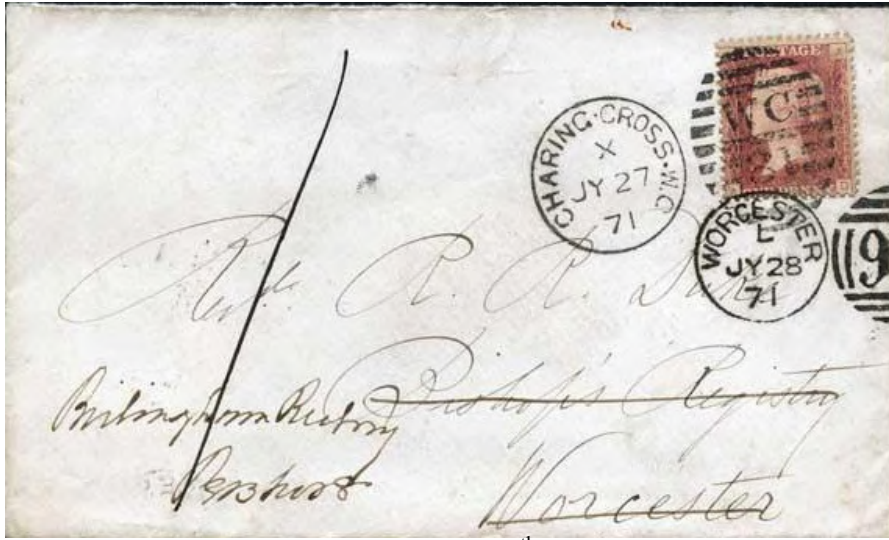 POSTAGE
WC
CHARING·CROSS·W.C
X
JY 27
71
WORCESTER
L
JY 28
71
9
R. R.
Bishop's Registry
Worcester
Rectory
Pershore
th